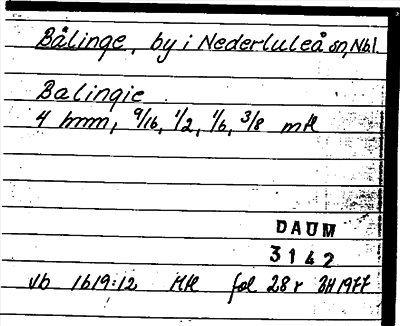 Bälinge, by i Nederluleå sn, Nbl.
Balingie
4 hmn, 9/16, 1/2, 1/6, 3/8 mtl
DAUM
3142
Vb 1619:12 Mtl fol 28 r BH 1977